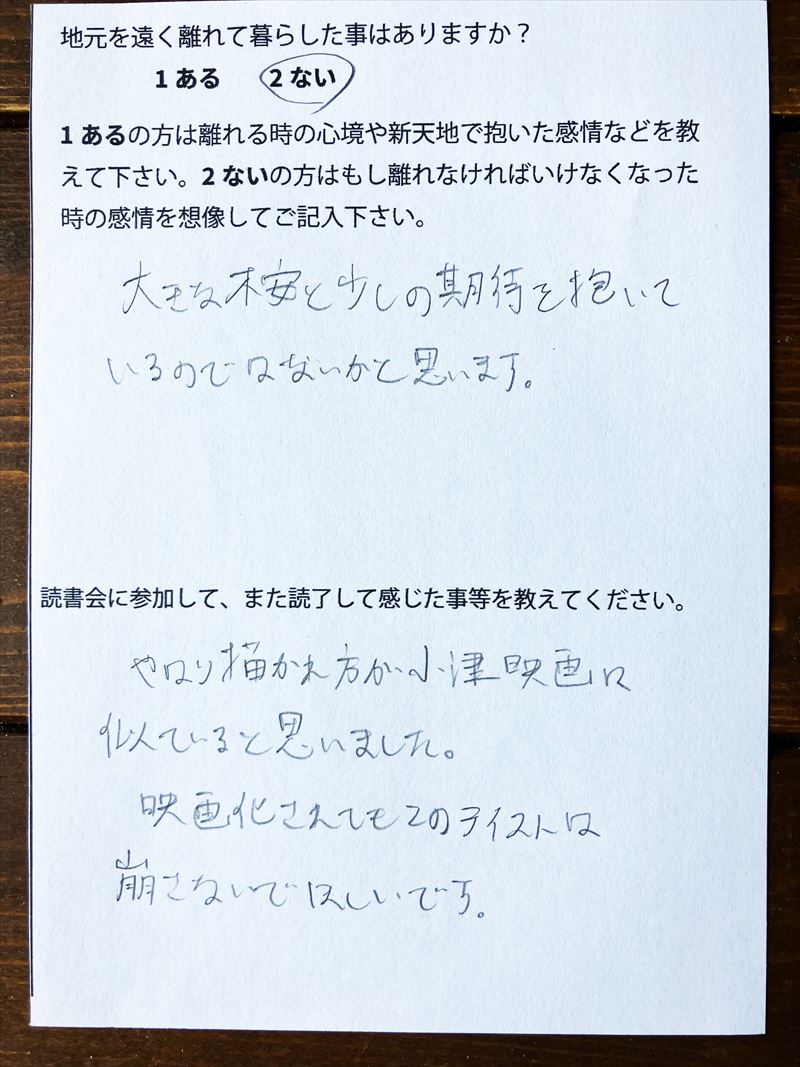 地元を遠く離れて暮らした事はありますか？
1 ある　2 ない
1 あるの方は離れる時の心境や新天地で抱いた感情などを教
えて下さい。2 ないの方はもし離れなければいけなくなった
時の感情を想像してご記入下さい。
大きな不安と少しの期待を抱いて
いるのではないかと思います。
読書会に参加して、また読了して感じた事等を教えてください。
やはり描かれ方が小津映画に
似ていると思いました。
映画化されてもこのテイストは
崩さないでほしいです。